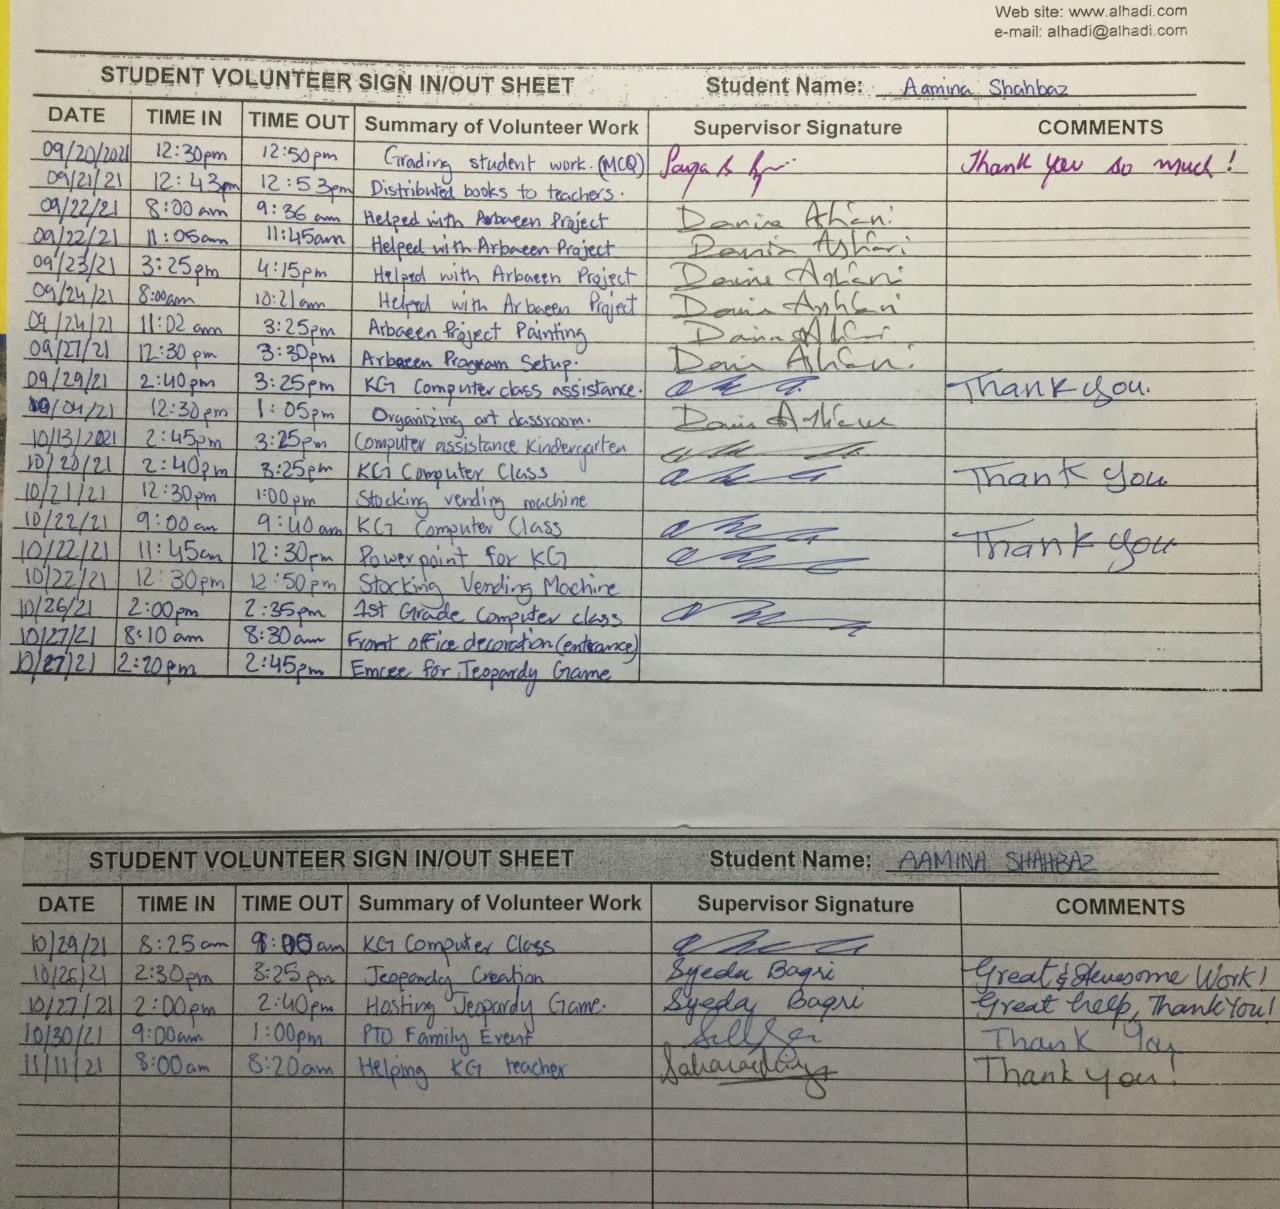 Web site: www.alhadi.com
e-mail: alhadi@alhadi.com
STUDENT VOLUNTEER SIGN IN/OUT SHEET Student Name: Aamina Shahbaz
DATE TIME IN TIME OUT Summary of Volunteer Work Supervisor Signature COMMENTS
09/20/2021 12:30pm 12:50pm Grading student work. (MCQ) Thank you so much!
09/21/21 12:43pm 12:53pm Distributed books to teachers.
09/22/21 8:00am 9:36am Helped with Arbaeen Project
09/22/21 11:05am 11:45am Helped with Arbaeen Project
09/23/21 3:25pm 4:15pm Helped with Arbaeen Project
09/24/21 8:00am 10:21am Helped with Arbaeen Project
09/24/21 11:02am 3:25pm Arbaeen Project Painting
09/27/21 12:30pm 3:30pm Arbaeen Program Setup.
09/29/21 2:40pm 3:25pm KG Computer class assistance. Thank you.
10/04/21 12:30pm 1:05pm Organizing art classroom.
10/13/2021 2:45pm 3:25pm Computer assistance Kindergarten
10/20/21 2:40pm 3:25pm KG Computer Class Thank you
10/21/21 12:30pm 1:00pm Stocking vending machine
10/22/21 9:00am 9:40am KG Computer Class
10/22/21 11:45am 12:30pm Powerpoint for KG Thank you
10/22/21 12:30pm 12:50pm Stocking Vending Machine
10/26/21 2:00pm 2:35pm 1st Grade Computer class
10/27/21 8:10am 8:30am Front office decoration (entrance)
10/27/21 2:20pm 2:45pm Emcee for Jeopardy Game
STUDENT VOLUNTEER SIGN IN/OUT SHEET Student Name: AAMINA SHAHBAZ
DATE TIME IN TIME OUT Summary of Volunteer Work Supervisor Signature COMMENTS
10/29/21 8:25am KG Computer Class
10/26/21 2:30pm 3:25pm Jeopardy Creation Syeda Bagri Great & Awesome Work!
10/27/21 2:00pm 2:40pm Hosting Jeopardy Game. Syeda Bagri Great help, Thank You!
10/30/21 9:00am 1:00pm PTO Family Event Thank You
11/11/21 8:00am 8:20am Helping KG teacher Thank you!